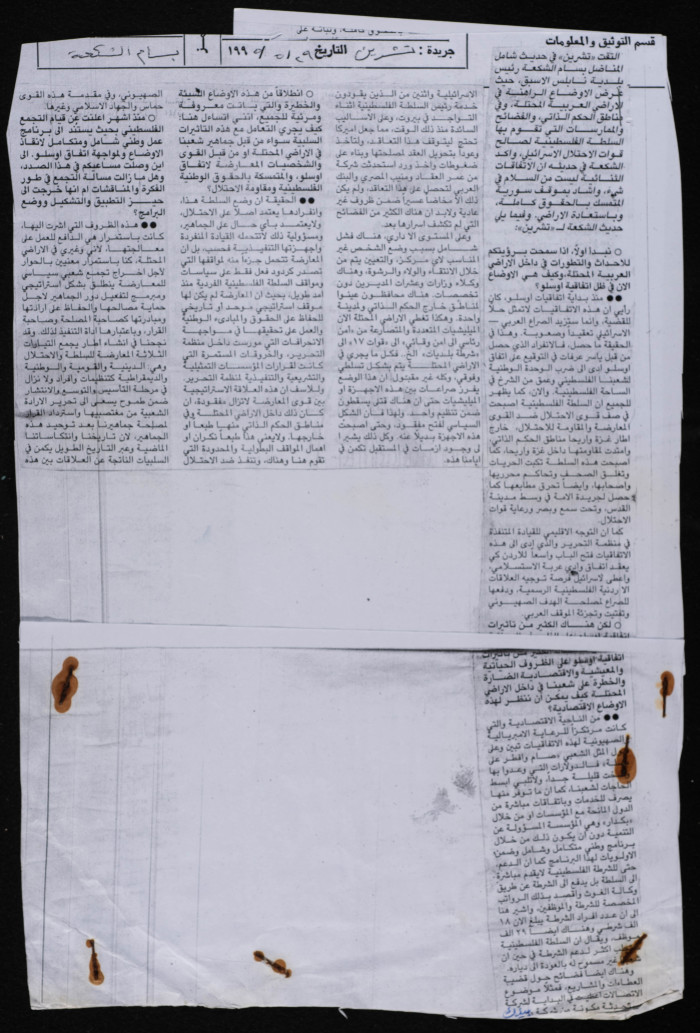 قسم التوثيق والمعلومات
جريدة: تشرين التاريخ ٢٩/٥/١٩٩٥ بسام الشكعة
التقت «تشرين» في حديث شامل
المناضل بسام الشكعة رئيس
بلدية نابلس الاسبق، حيث
عرض الاوضاع الراهنة في
الاراضي العربية المحتلة، وفي
مناطق الحكم الذاتي، والفضائح
والممارسات التي تقوم بها
السلطة الفلسطينية لصالح
قوات الاحتلال الاسرائيلي، واكد
الشكعة في حديثه ان الاتفاقات
الثنائية ليست من السلام في
شيء، واشاد بموقف سورية
المتمسك بالحقوق كاملة،
وباستعادة الاراضي. وفيما يلي
حديث الشكعة لـ «تشرين»:
○ نبدأ اولاً، اذا سمحت برؤيتكم
للأحداث والتطورات في داخل الاراضي
العربية المحتلة، وكيف هي الاوضاع
الآن في ظل اتفاقية اوسلو؟
●● منذ بداية اتفاقيات اوسلو، كان
رأيي ان هذه الاتفاقيات لاتمثل حلاً
للقضية، وانما ستزيد الصراع العربي ـ
الاسرائيلي تعقيداً وصعوبة.. وهذا في
الحقيقة ما حصل، فالانفراد الذي حصل
من قبل ياسر عرفات في التوقيع على اتفاق
اوسلو ادى الى ضرب الوحدة الوطنية
لشعبنا الفلسطيني وعمق من الشرخ في
الساحة الفلسطينية. والآن، كما يظهر
للجميع ان السلطة الفلسطينية اصبحت
في صف قوى الاحتلال ضد القوى
المعارضة والمقاومة للاحتلال، خارج
اطار غزة واريحا مناطق الحكم الذاتي،
وامتدت لمقاومتها داخل غزة واريحا، كما
اصبحت هذه السلطة تكبت الحريات
وتغلق الصحف وتحاكم محرريها
واصحابها، وايضاً تحرق مطابعها كما
حصل لجريدة الامة في وسط مدينة
القدس، وتحت سمع وبصر ورعاية قوات
الاحتلال.
كما ان التوجه الاقليمي للقيادة المتنفذة
في منظمة التحرير والذي ادى الى هذه
الاتفاقيات فتح الباب واسعاً للاردن كي
يعقد اتفاق وادي عربة الاستسلامي،
واعطى لاسرائيل فرصة توجيه العلاقات
الاردنية الفلسطينية الرسمية، ودفعها
للصراع لمصلحة الهدف الصهيوني
وتفتيت وتجزئة الموقف العربي.
○ لكن هناك الكثير من تأثيرات
اتفاقية اوسلو على الظروف الحياتية
والمعيشية والاقتصادية الضارة
والخطرة على شعبنا في داخل الاراضي
المحتلة كيف يمكن أن ننظر لهذه
الاوضاع الاقتصادية؟
●● من الناحية الاقتصادية والتي
كانت مرتكزاً للرعاية الامبريالية
والصهيونية لهذه الاتفاقيات تبين وعلى
المثل الشعبي «صام وافطر على
فالدولارات التي وعدوا بها
قليلة جداً، ولاتلبي ابسط
الحاجات لشعبنا، كما ان ما توفر منها
يصرف للخدمات وباتفاقات مباشرة من
الدول المانحة مع المؤسسات او من خلال
«بكدار»، وهي المؤسسة المسؤولة عن
التنمية دون ان يكون ذلك من خلال
برنامج وطني متكامل وشامل وضمن
الاولويات لهذا البرنامج كما ان الدعم،
حتى للشرطة الفلسطينية لايقدم مباشرة
الى السلطة بل يدفع الى الشرطة عن طريق
وكالة الغوث وأقصد بذلك الرواتب
المخصصة للشرطة والموظفين، واشير هنا
الى ان عدد افراد الشرطة يبلغ الآن ١٨
الف شرطي وهناك ايضاً ٢٩ الف
موظف، ويقال ان السلطة الفلسطينية
اكثر لدعم الشرطة في حين ان
غير مسموح له بالعودة الى دياره.
وهناك ايضاً فضائح حول قضية
العطاءات والمشاريع، فمثلاً موضوع
الاتصالات اعطيت في البداية لشركة
الاسرائيلية واثنين من الذين يقودون
خدمة رئيس السلطة الفلسطينية اثناء
التواجد في بيروت، وعلى الاساليب
السائدة منذ ذلك الوقت، مما جعل اميركا
تحتج ليتوقف هذا التعاقد، ولتأخذ
وعوداً بتحويل العقد لمصلحتها وبناء على
ضغوطات واخذ ورد استحدثت شركة
من عمر العقاد ومنيب المصري والبنك
العربي لتحصل على هذا التعاقد، ولم يكن
ذلك الا مخاضاً عسيراً ضمن ظروف غير
عادية ولابد ان هناك الكثير من الفضائح
التي لم تكشف اسرارها بعد.
وعلى المستوى الاداري، هناك فشل
متواصل بسبب وضع الشخص غير
المناسب لأي مركز، والتعيين يتم من
خلال الانتقاء والولاء والرشوة، وهناك
وكلاء وزارات وعشرات المديرين دون
تخصصات. هناك محافظون عينوا
لمناطق خارج الحكم الذاتي ولمدينة
واحدة. وهكذا تغطي الاراضي المحتلة الآن
الميليشيات المتعددة والمتصارعة من «أمن
رئاسي الى امن وقائي»، الى «قوات ١٧»، الى
«شرطة بلديات»، الخ.. فكل ما يجري في
الاراضي الفلسطينية يتم بشكل تسلطي
وفوقي، وكله غير مقبول ان هذا الوضع
يفرز صراعات بين هذه الاجهزة او
الميليشيات حتى ان هناك قتلى يسقطون
ضمن تنظيم واحد. ولهذا فان الشكل
السياسي لفتح مفقود، وحتى اصبحت
هذه الاجهزة بديلاً عنه. وكل ذلك يشير ا
لى وجود ازمات في المستقبل تكمن في
أيامنا هذه.
○ انطلاقاً من هذه الاوضاع السيئة
والخطرة والتي باتت معروفة
ومرئية للجميع، انني اتساءل هنا:
كيف يجري التعامل مع هذه التأثيرات
السلبية سواء من قبل جماهير شعبنا
في الاراضي المحتلة او من قبل القوى
والشخصيات المعارضة لاتفاق
اوسلو، والمتمسكة بالحقوق الوطنية
الفلسطينية ومقاومة الاحتلال؟
●● الحقيقة ان وضع السلطة هذا،
وانفرادها يعتمد اصلاً على الاحتلال،
ولايعتمد بأي حال على الجماهير،
ومسؤولية ذلك لاتتحمله القيادة المنفردة
واجهزتها التنفيذية فحسب، بل ان
المعارضة تتحمل جزءاً منه لمواقفها التي
تصدر كردود فعل فقط على سياسات
ومواقف السلطة الفلسطينية الفردية منذ
أمد طويل، بحيث ان المعارضة لم يكن لها
موقف استراتيجي موحد او تاريخي
للحفاظ على الحقوق والمبادىء الوطنية
والعمل على تحقيقها في مواجهة
الانحرافات التي مورست داخل منظمة
التحرير، والخروقات المستمرة التي
كانت لقرارات المؤسسات التمثيلية
والتشريعية والتنفيذية لمنظمة التحرير.
وللاسف ان هذه العلاقة الاستراتيجية
بين قوى المعارضة لاتزال مفقودة، ان
كان ذلك داخل الاراضي المحتلة وفي
مناطق الحكم الذاتي منها طبعاً او
خارجها. ولايعني هذا طبعاً نكران او
اهمال المواقف البطولية والمحدودة التي
تقوم هنا وهناك، وتنفذ ضد الاحتلال
الصهيوني، وفي مقدمة هذه القوى
حماس والجهاد الاسلامي وغيرها.
○ منذ اشهر اعلنت عن قيام التجمع
الفلسطيني بحيث يستند الى برنامج
عمل وطني شامل ومتكامل لانقاذ
الاوضاع ولمواجهة اتفاق اوسلو. الى
اين وصلت مساعيكم في هذا الصدد،
وهل ما زالت مسألة التجمع في طور
الفكرة والمناقشات ام انها خرجت الى
حيز التطبيق والتشكيل ووضع
البرامج؟
●● هذه الظروف التي اشرت اليها،
كانت باستمرار هي الدافع للعمل على
معالجتها. لأني وغيري في الاراضي
المحتلة، كنا باستمرار معنيين بالحوار
لأجل اخراج تجمع شعبي سياسي
للمعارضة ينطلق بشكل استراتيجي
ومبرمج لتفعيل دور الجماهير لاجل
حماية مصالحها والحفاظ على ارادتها
ومبادرتها كصاحبة المصلحة وصاحبة
القرار، وباعتبارها أداة التنفيذ لذلك. وقد
نجحنا في انشاء اطار يجمع التيارات
الثلاثة المعارضة للسلطة والاحتلال
وهي الدينية والقومية والوطنية
والديمقراطية كتنظيمات وافراد ولا نزال
في مرحلة التأسيس والتوسع والانتشار
ضمن طموح يسعى الى تحرير الارادة
الشعبية من مغتصبيها واسترداد القرار
لمصلحة جماهيرنا بعد توحيد هذه
الجماهير، لان تاريخنا وانتكاساتنا
الماضية وعبر التاريخ الطويل يكمن في
السلبيات الناتجة عن العلاقات بين هذه